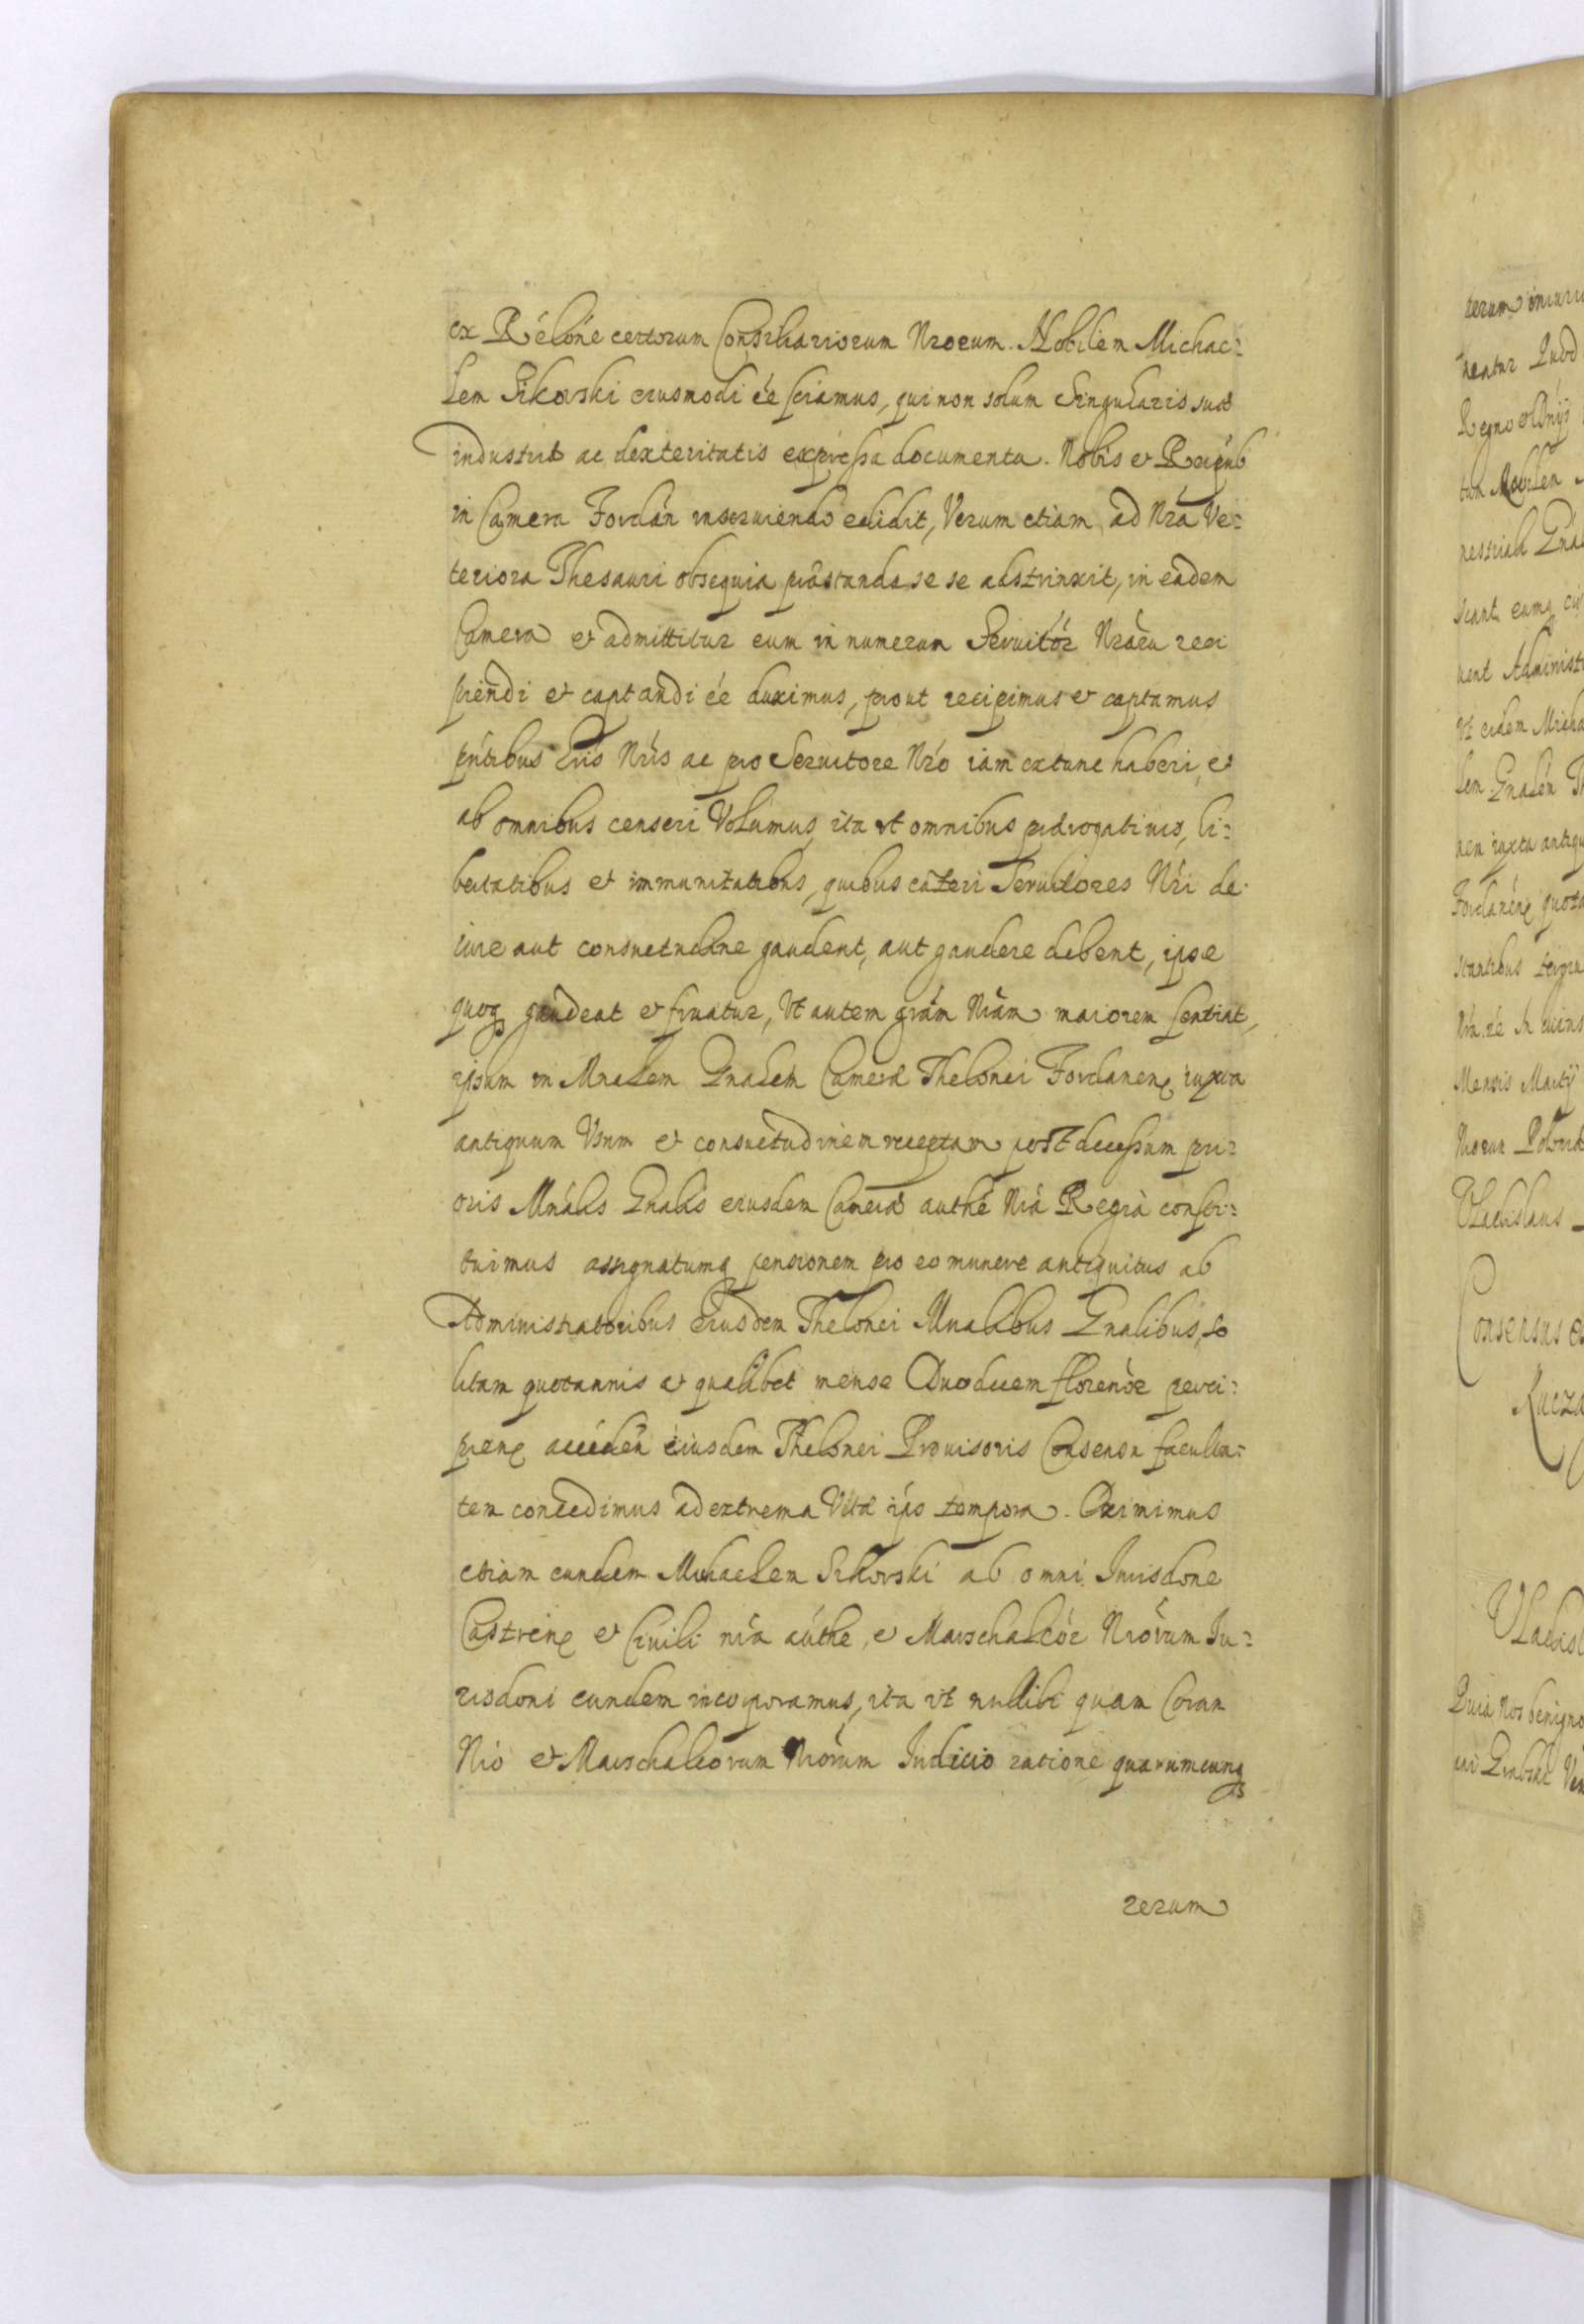 ex Rélóne certorum Consiliariorum Nrorum. Nobilem Michae:
lem Sikorski eiusmodi ée sciamus, qui non solum singularis suæ
industriæ ac dexteritatis expressa documenta. Nobis et
in Camera Fordan inseruiendo edidit, Verum etiam ad Nrá Ve:
teriora Thesauri obsequia præstanda se se adstrinxit, in eadem
Camera et admittitur eum in numerum Seruitór Nróru reci
piendi et captandi ée duximus, prout recipimus et captamus
pntibus Lris Nris ac pro Seruitore Nró iam extunc haberi, et
ab omnibus censeri Volumus, ita vt omnibus prærogatiuis, li:
bertatibus et immunitatibus, quibus cæteri Seruitores Nri de
iure aut consuetudine gaudent, aut gaudere debent, ipse
quoq gaudeat et fruatur, Vt autem grám Nrám maiorem sentiat,
ipsum in Mnalem Gnalem Cameræ Thelonei Fordanen iuxta
antiquum Vsum et consuetudinem receptam post decessum pri:
oris Mnális Gnalis eiusdem Cameræ authé Nrá Regiá consti:
tuimus assignatumq pensionem pro eo munere antiquitus ab
Administratoribus eiusdem Thelonei Mnalibus Gnalibus, so
litam quotannis et qualibet mense Duodecim florenór perci:
pien accéden eiusdem Thelonei Prouisoris Consensu faculta:
tem concedimus ad extrema Vitæ ips tempora. Eximimus
etiam eundem Michaelem Sikorski ab omni Iurisdone
Castren et Ciuili nrá aúthe, et Marschalcór Nrórum Iu:
risdoni eundem incorporamus, ita vt nullibi quam Coram
Nró et Marschalcorum Nrórum Iudicio ratione quarumcunq
rerum
rerum
neatur Quod
Regno
Administ
Vt eidem Micha
lem Gnalém Th
nem iuxta antiqu
Fordanen quota
Mensis Martij
Vladislaus
Consensus
Kucza
Vladisl
Quia Nos benigno